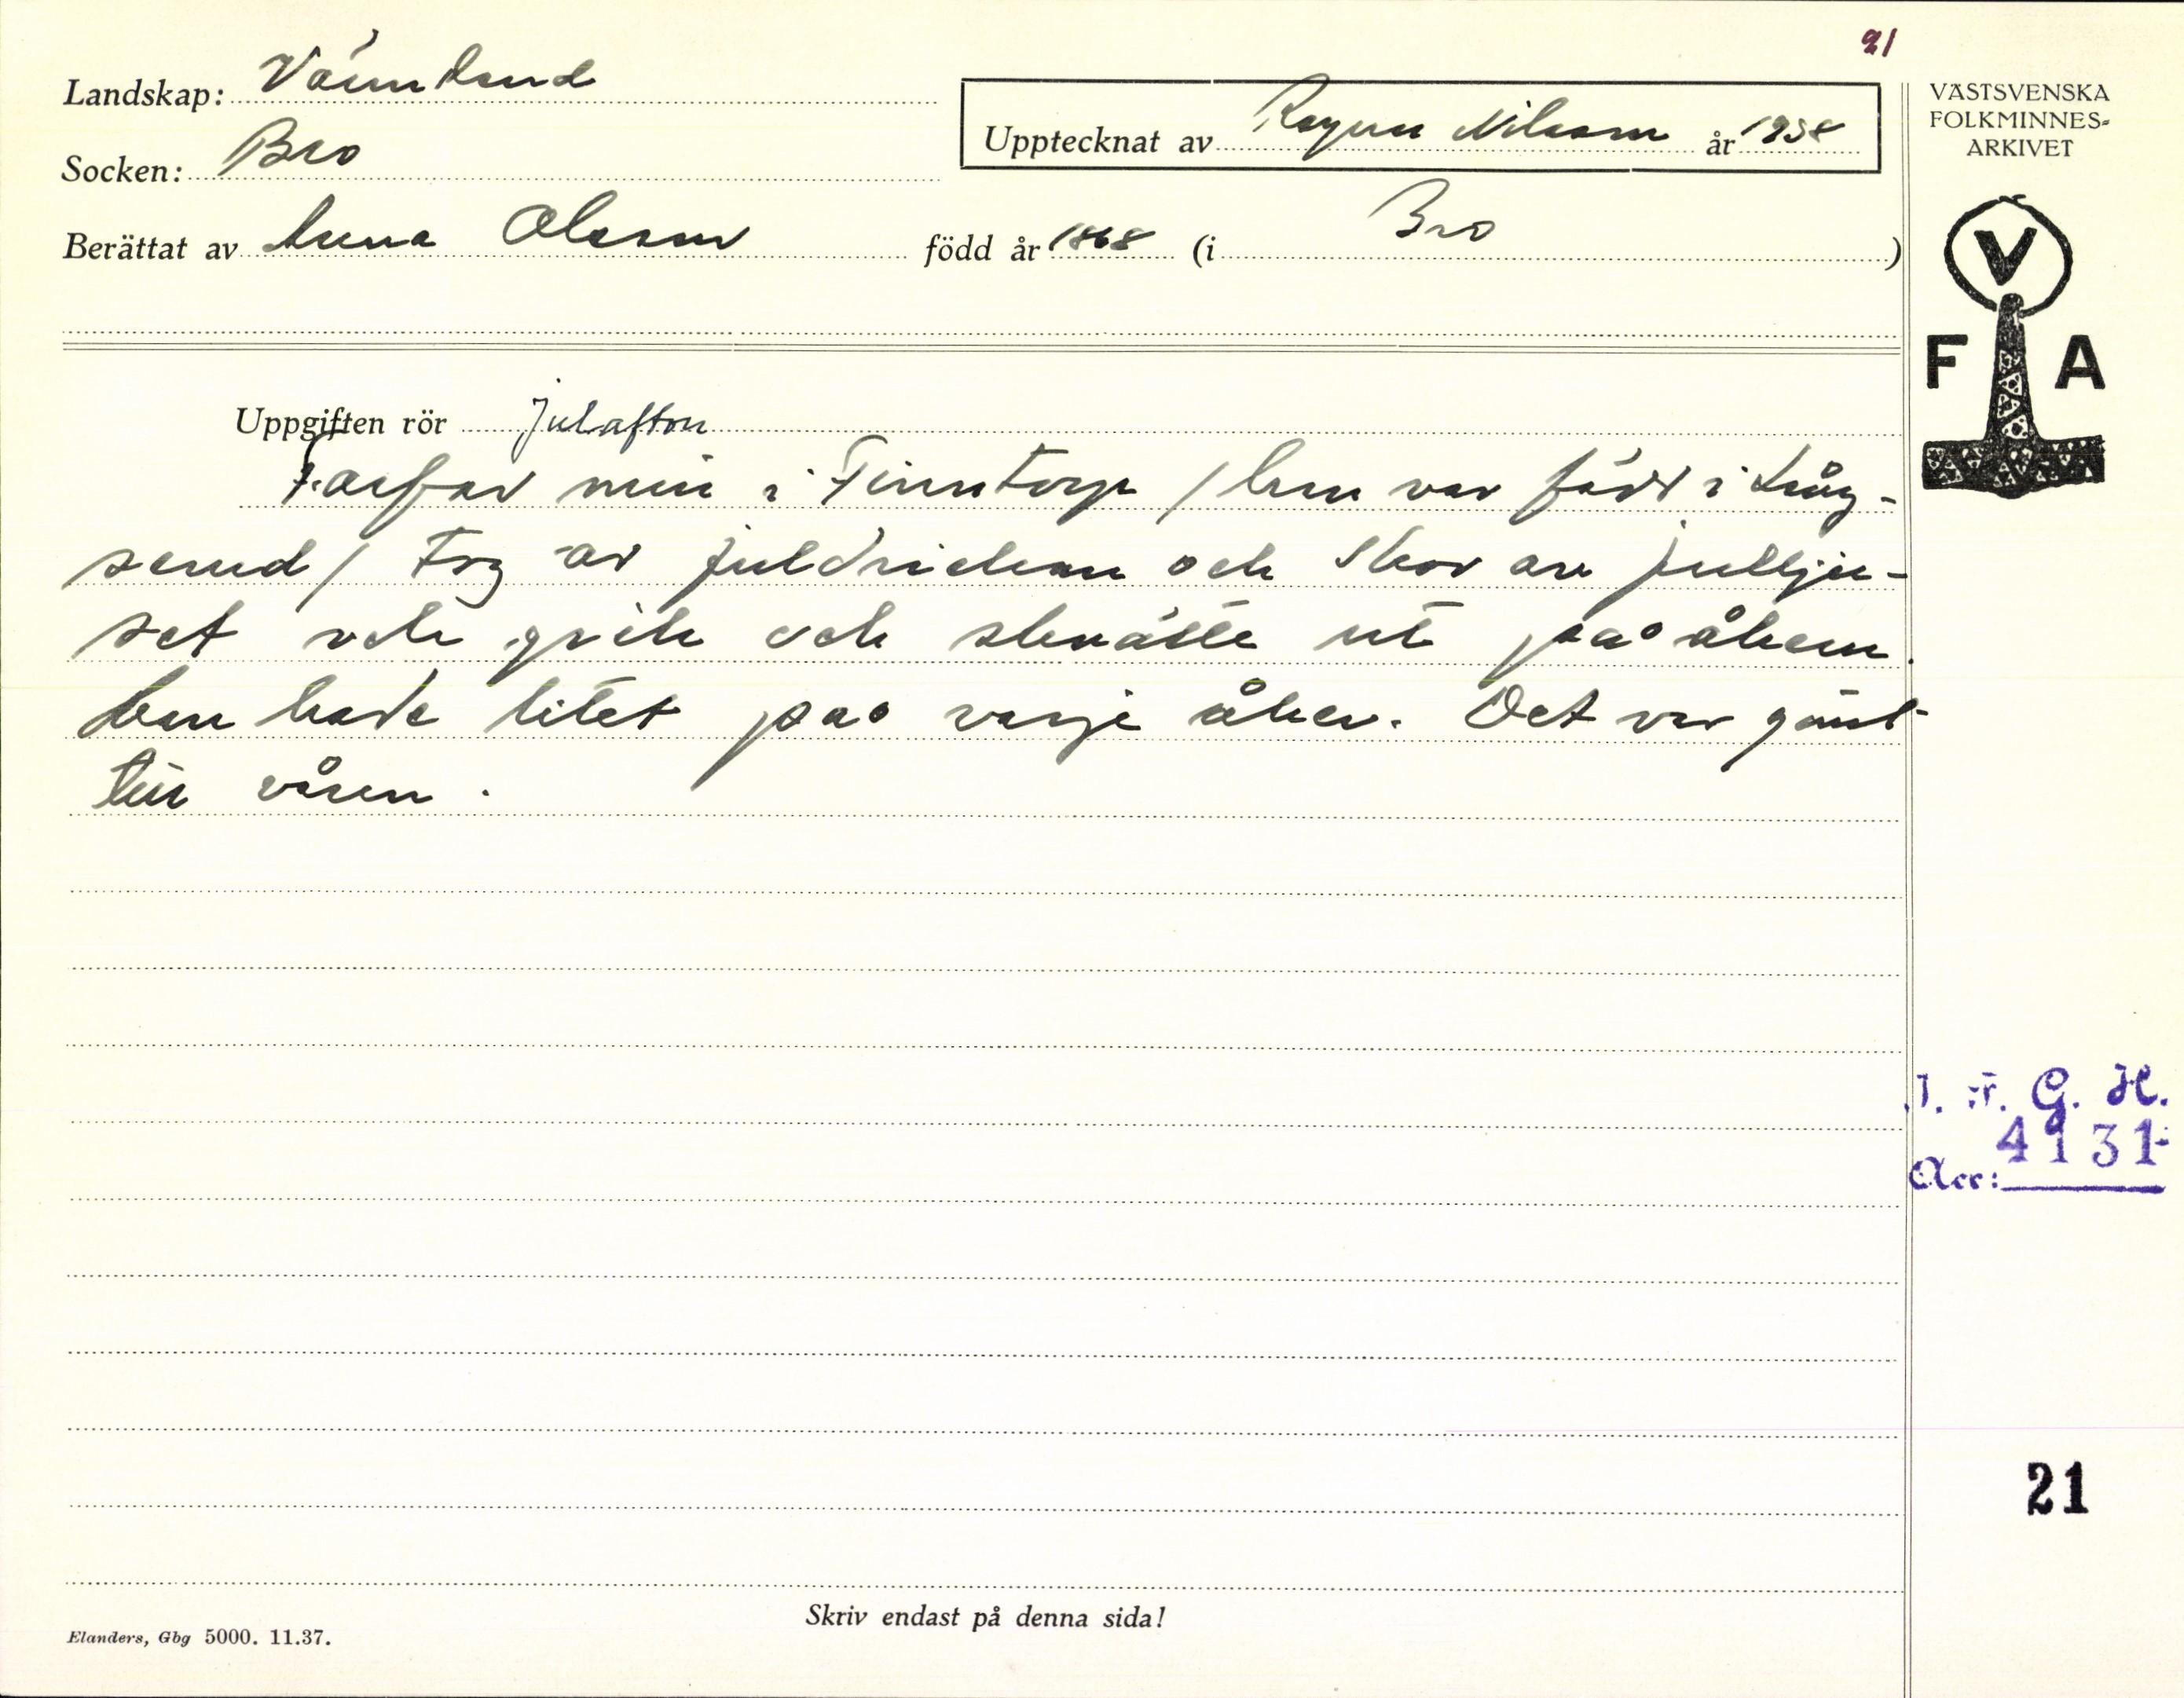 21
Landskap: Värmland
Upptecknat av Ragnar Nilsson år 1938
Socken: Bro
Berättat av Anna Olsson född år 1868 (i Bro)
VÄSTSVENSKA
FOLKMINNES-
ARKIVET
V
F A
Uppgiften rör Julafton
Farfar min i Finntorp / han var född i Lång-
serud / tog av juldrickan och skar av jullju-
set och gick och stänkte ut på åkern.
han hade litet på varje åker. Det var
våren.
I. F. G. H.
4131
Acc:
21
Skriv endast på denna sida!
Elanders, Gbg 5000. 11.37.